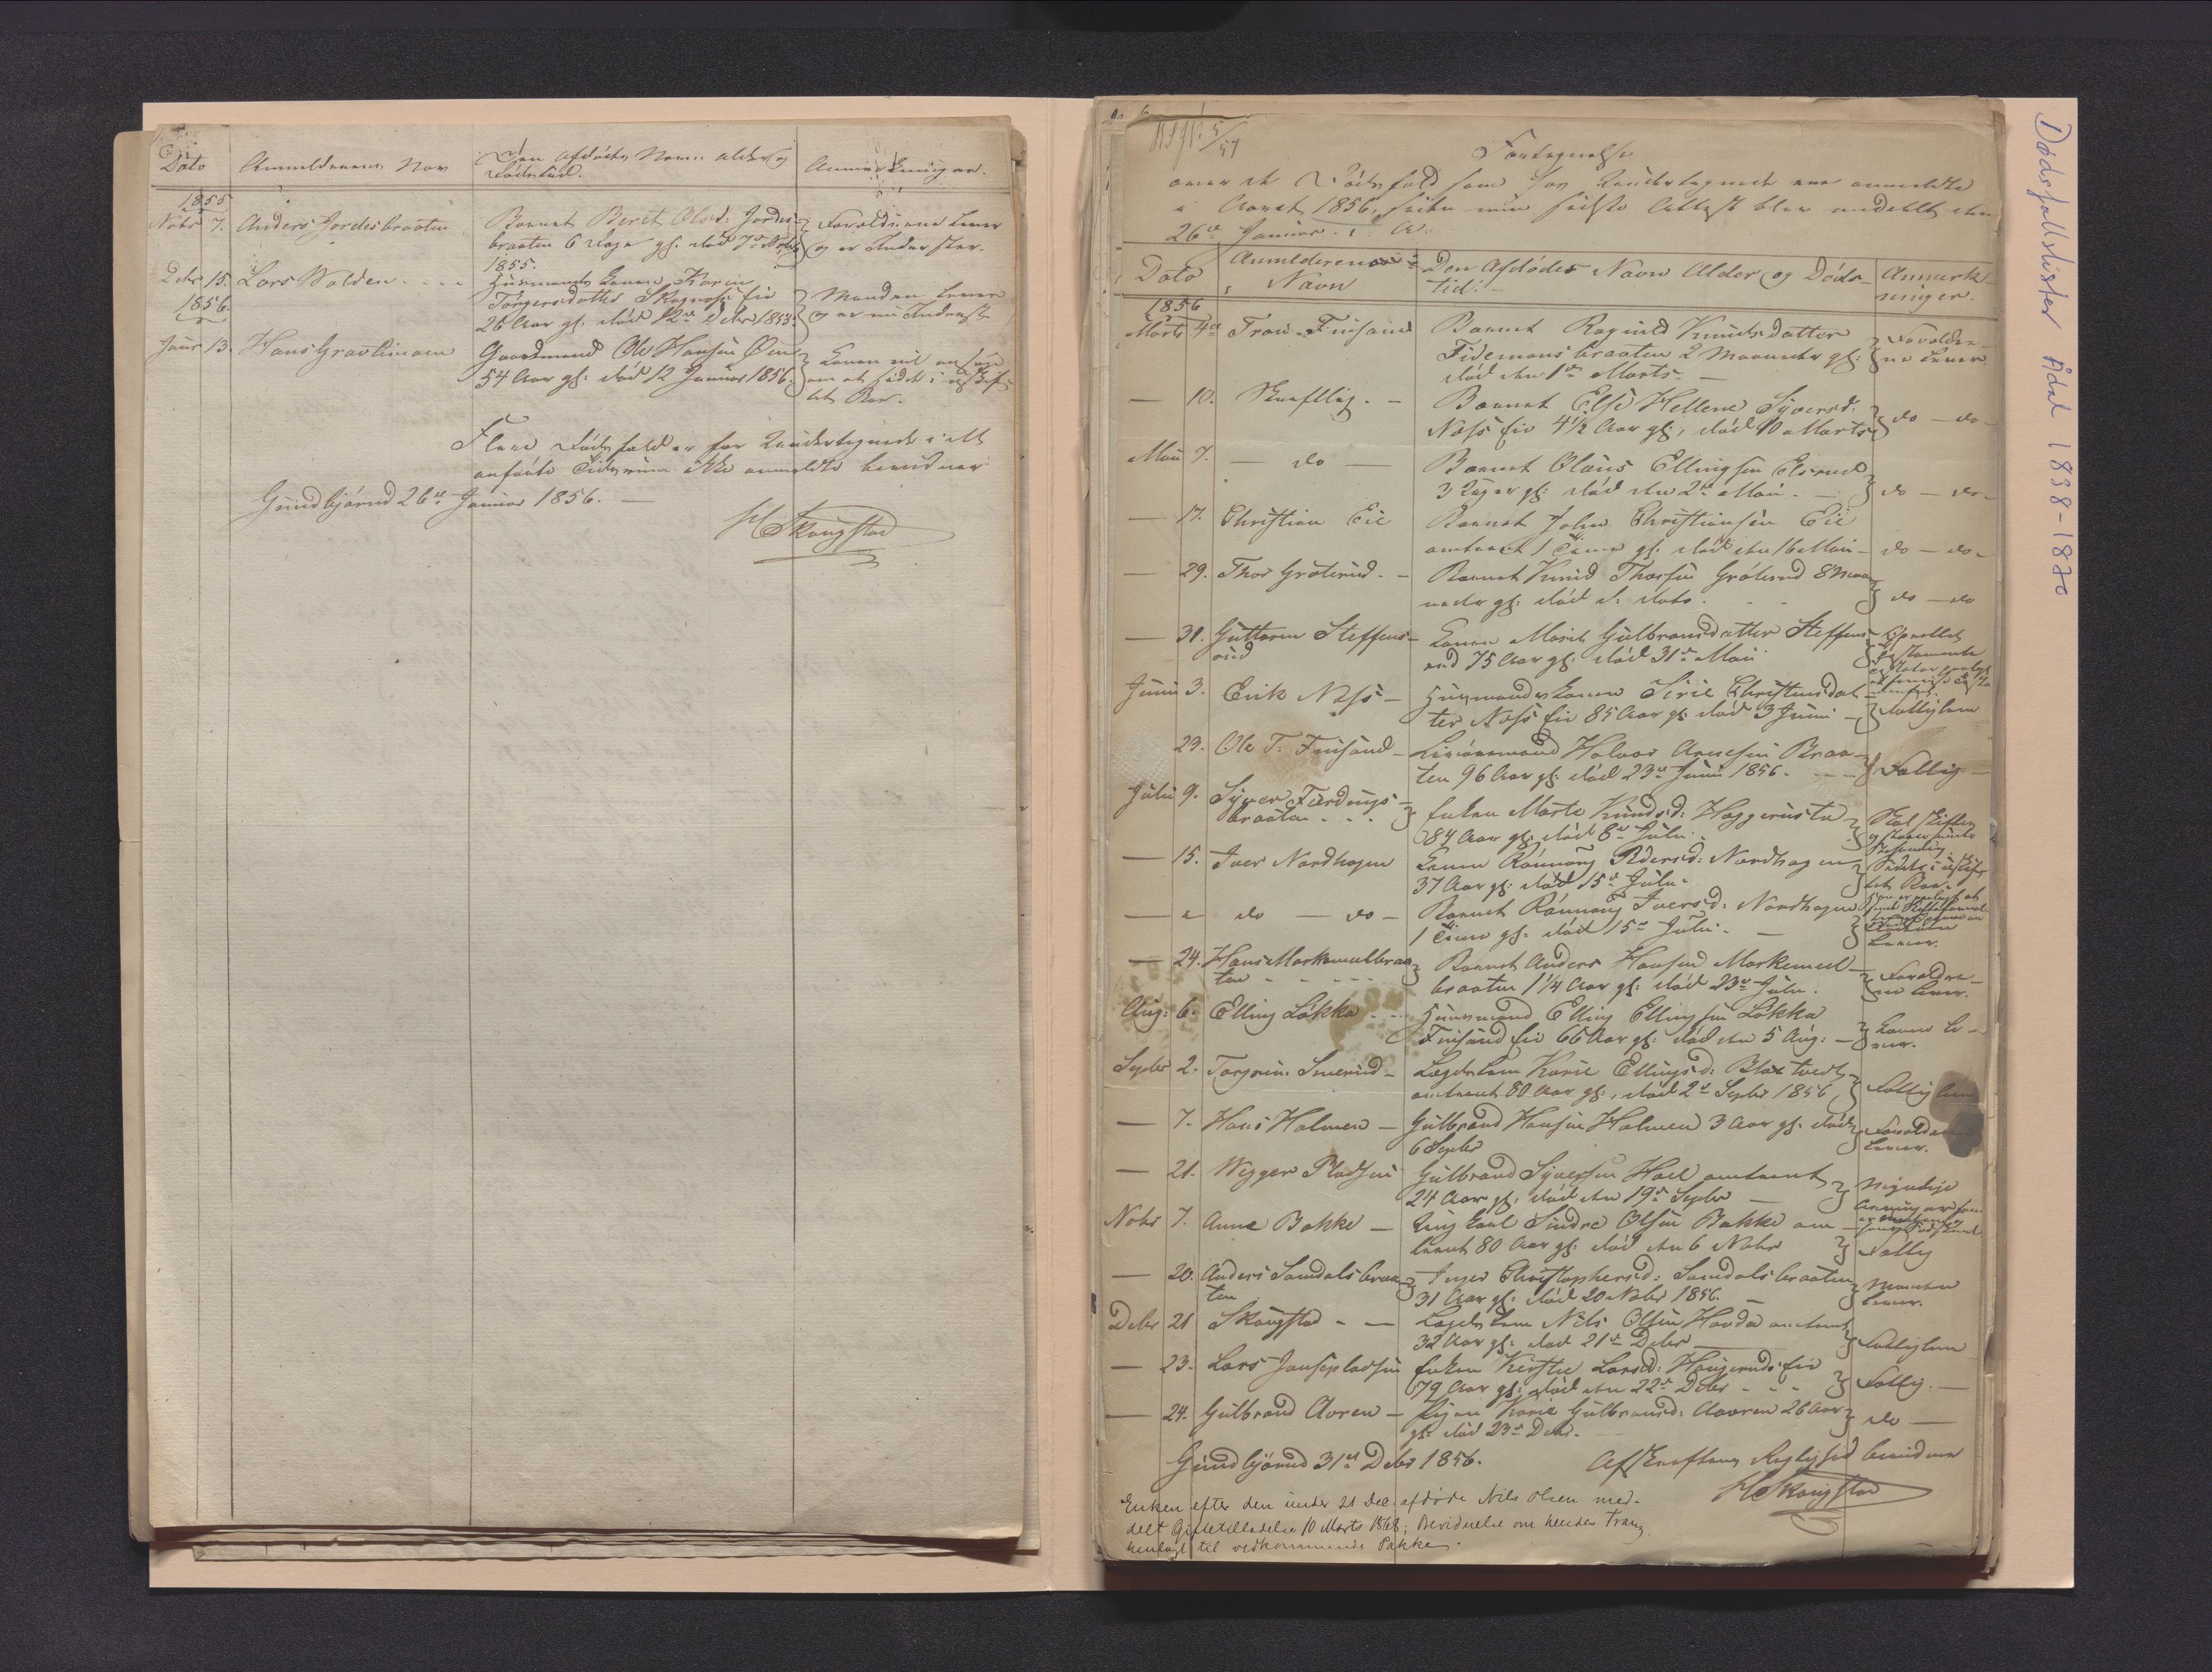 Dato
Anmelderens Nav
Den afdødes Navn alder og
Dødstid.
Anmærkninger.
1855
Nobr 7. Anders Jordesbraaten
Barnet Berit Olsd: Jordes-
braaten 6 Dage gl. død 7de Nobr
1855.
Forældrene lever
og er Inderster.
Debr 15. Lars Wolden
Huusmands Konen Karen
Torgersdatter Skagnæs Eie
26 Aar gl. død 12te Debr 1855.
Manden lever
og er en Inderst
1856.
Janr 13. Hans Gravlimoen
Gaardmand Ole Hansen Øen
54 Aar gl: død 12 Januar 1856.
Konen vil ansøge
om at sidde i uskif-
tet Boe.
Flere Dødsfald er for Undertegnede i det
anførte Tidsrum ikke anmeldte bevidner
Gundbjørud 26de Januar 1856.
H Skougstad
5/57
Fortegnelse
over de Dødsfald som for Undertegnede ere anmeldte
i Aaret 1856, siden min sidste Attest blev meddelt den
26de Januar s. A.
Dato
Anmelderens
Navn
Den Afdødes Navn Alder og Døds-
tid.
Anmærk-
ninger.
1856
Marts 4de Trond Finsand
Barnet Ragnild Knudsdatter
Fidemansbraaten 2 Maaneder gl:
død den 1ste Marts
Forældre-
ne lever
— 10. Skriftlig. —
Barnet Else Hellene Syversd:
Næss Eie 4½ Aar gl, død 10 Marts
do — do
Mai 7. — do —
Barnet Olaus Ellingsen Elsrud
3 Uger gl: død den 2den Mai.
do — do
— 17. Christian Eie
Barnet John Christiansen Eie
omtrent 1 Time gl. død den 16 Mai
do — do
— 29. Thor Grøterud. —
Barnet Knud Thorsen Grøterud 8 Maa-
neder gl: død d: Dato.
do — do
— 31. Guttorm Steffens-
rud
Konen Marit Gulbrandsdatter Steffens-
rud 75 Aar gl: død 31te Mai
Juni 3. Erik Næss —
Huusmandskonen Siri Christensdat-
ter Næss Eie 85 Aar gl: død 3 Juni
Fattiglem
23. Ole T: Finsand
Halvor Arnesen Braa-
ten 96 Aar gl: død 23de Juni 1856.
Fattig
Juli 9. Syver Færdings-
braaten
Enken Marte Knudsd: Haggerusta
84 Aar gl: død 8de Juli
Skal skiftes
— 15. Iver Nordhagen
Konen Rønnoug Pedersd: Nordhagen
37 Aar gl: død 15de Juli.
— do — do —
Barnet Rønnoug Iversd: Nordhagen
1 Time gl. død 15de Juli.
lever.
— 24. Hans Morkemælbraa-
ten
Barnet Anders Hansen Morkemæl-
braaten 1¼ Aar gl: død 23de Juli.
Forældre-
ne lever.
Aug: 6. Elling Løkka
Huusmand Elling Ellingsen Løkka
Finsand Eie 66 Aar gl: død den 5 Aug:
Konen le-
ver.
Septbr 2. Torgrim Smerud
Lægdslem Karie Ellingsd: Bla tvedt
omtrent 80 Aar gl:, død 2de Septbr 1856
Fattiglem
— 7. Hans Holmen —
Gulbrand Hansen Holmen 3 Aar gl. død
6 Septbr
Forældrene
lever.
— 21. Wegger Pladsen
Gulbrand Syversen Hoel omtrent
24 Aar gl: død den 19de Septbr
Nobr 7. Anna Bakke —
Ungkarl Sindre Olsen Bakke om-
trent 80 Aar gl: død den 6 Nobr
Fattig
— 20. Anders Somdalsbraa-
ten
Inger Christophersd: Somdalsbraaten
31 Aar gl: død 20 Nobr 1856.
Manden
lever.
Debr 21 Skougstad — —
Lægdslem Nils Olsen Hovda omtrent
32 Aar gl: død 21de Debr
Fattiglem
— 23. Lars Jonsepladsen
Enken Kirstie Larsd: Haugerud Eie
79 Aar gl: død den 22de Debr
Fattig.
— 24. Gulbrand Aaren —
Pigen Karie Gulbransd: Aaaren 26 Aar
gl: død 23de Debr.
do —
Gundbjørud 31te Debr 1856.
Afskriftens Rigtighed bevidner
H Skougstad
Enken efter den under 21 Dec. afdøde Nils Olsen med-
delt Giftetilladelse 10 Marts 1868; Bevidnelse om hendes Trang
henlagt til vedkommende Pakke.
Dødsfallslister Ådal 1838-1870